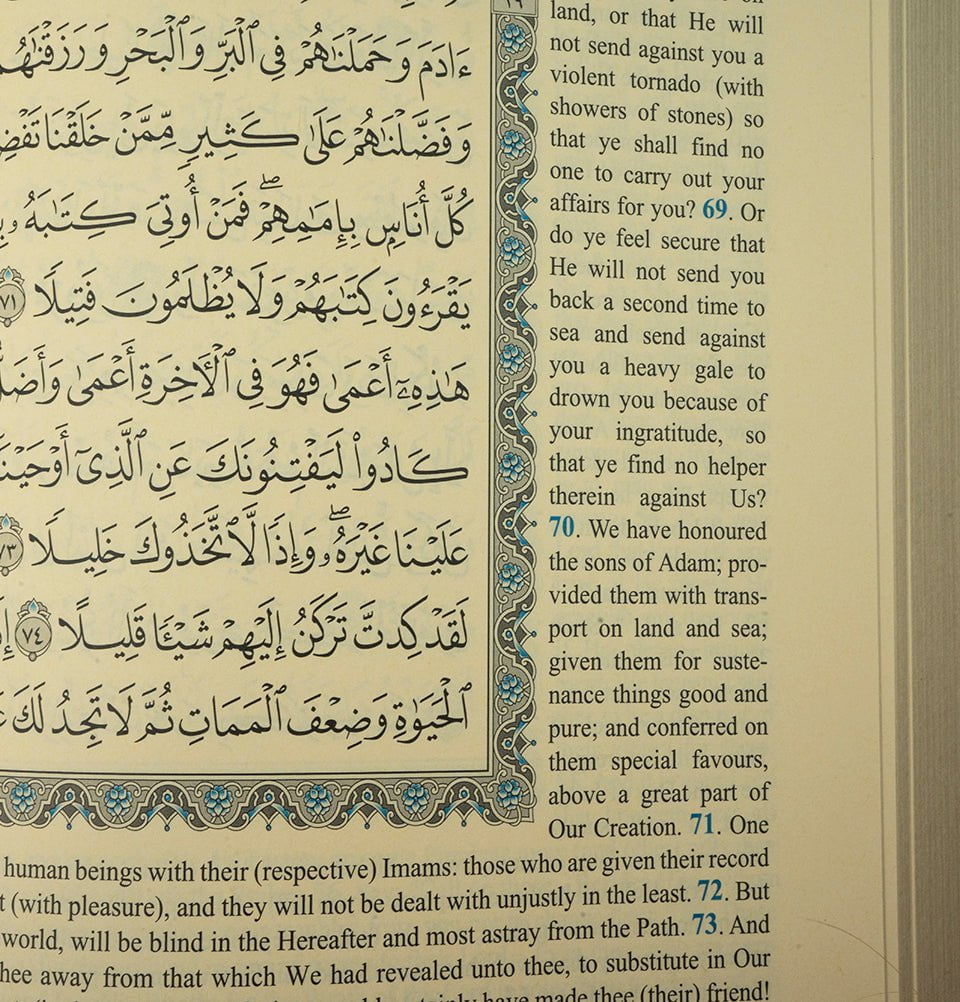 ءَادَمَ وَحَمَلْنَٰهُمْ فِي ٱلْبَرِّ وَٱلْبَحْرِ وَرَزَقْنَٰهُم
وَفَضَّلْنَٰهُمْ عَلَىٰ كَثِيرٍ مِّمَّنْ خَلَقْنَا
كُلَّ أُنَاسٍۭ بِإِمَٰمِهِمْ ۖ فَمَنْ أُوتِىَ كِتَٰبَهُۥ
يَقْرَءُونَ كِتَٰبَهُمْ وَلَا يُظْلَمُونَ فَتِيلًا ٧١
هَٰذِهِۦٓ أَعْمَىٰ فَهُوَ فِي ٱلْأَخِرَةِ أَعْمَىٰ وَأَضَلُّ
كَادُوا۟ لَيَفْتِنُونَكَ عَنِ ٱلَّذِىٓ أَوْحَيْنَ
عَلَيْنَا غَيْرَهُۥ ۖ وَإِذًا لَّٱتَّخَذُوكَ خَلِيلًا ٧٣
لَقَدْ كِدتَّ تَرْكَنُ إِلَيْهِمْ شَيْـًٔا قَلِيلًا ٧٤
ٱلْحَيَوٰةِ وَضِعْفَ ٱلْمَمَاتِ ثُمَّ لَا تَجِدُ لَكَ
land, or that He will
not send against you a
violent tornado (with
showers of stones) so
that ye shall find no
one to carry out your
affairs for you? 69. Or
do ye feel secure that
He will not send you
back a second time to
sea and send against
you a heavy gale to
drown you because of
your ingratitude, so
that ye find no helper
therein against Us?
70. We have honoured
the sons of Adam; pro-
vided them with trans-
port on land and sea;
given them for suste-
nance things good and
pure; and conferred on
them special favours,
above a great part of
Our Creation. 71. One
human beings with their (respective) Imams: those who are given their record
t (with pleasure), and they will not be dealt with unjustly in the least. 72. But
world, will be blind in the Hereafter and most astray from the Path. 73. And
hee away from that which We had revealed unto thee, to substitute in Our
have made thee (their) friend!